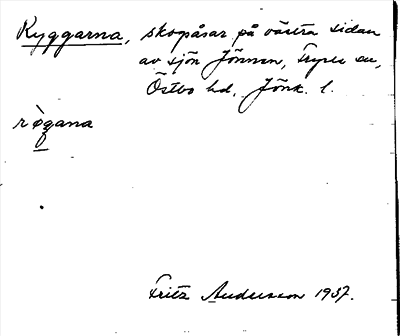 Ryggarna, skogsåsar på västra sidan
av sjön Jönnen, Fryele sn,
Östbo hd, Jönk. l.
rø̀gana
Fritz Andersson 1937.